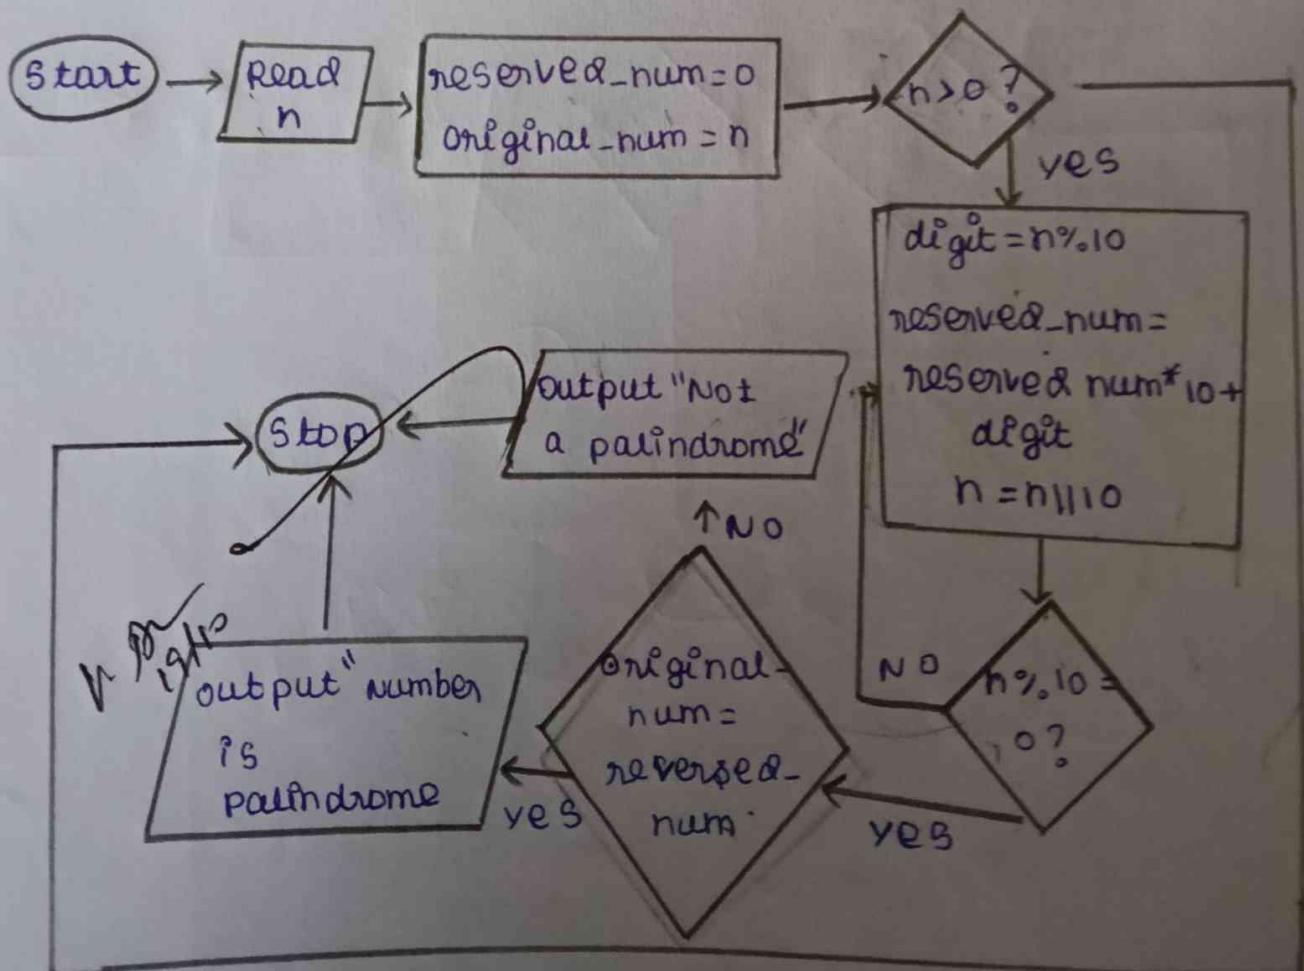 Start
Read
n
reserved_num=0
original_num=n
n>0?
yes
digit=n%10
reserved_num=
reserved num*10+
digit
n=n||10
n%10=
0?
NO
yes
original_
num=
reversed_
num
NO
output "Not
a palindrome"
yes
output "number
is
palindrome
Stop